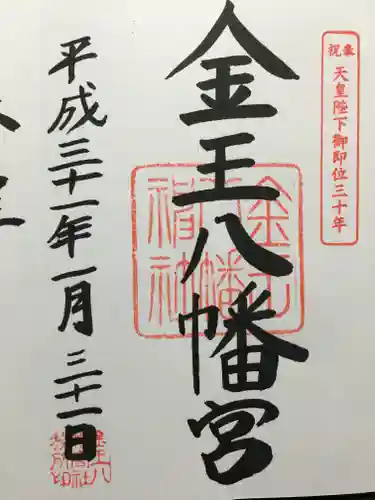 奉祝 天皇陛下御即位三十年
金王八幡宮
平成三十一年一月三十一日